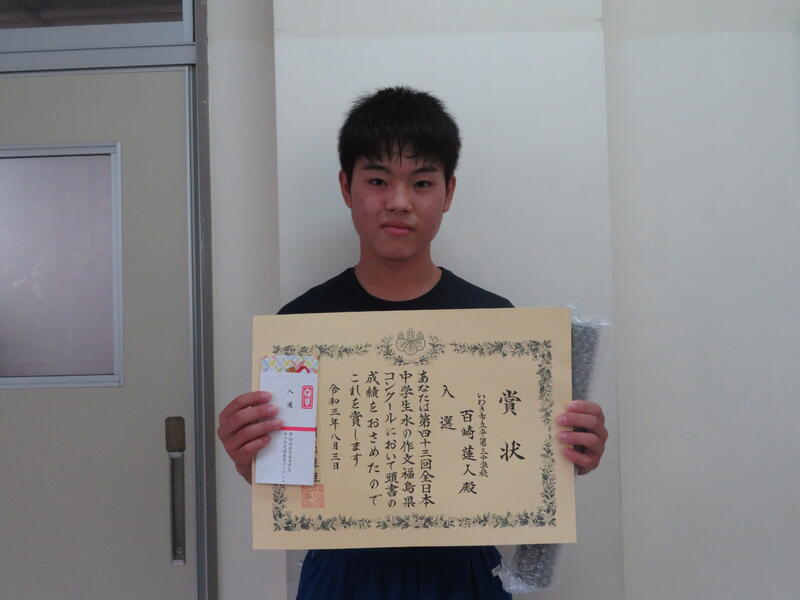 賞状
いわき市立平第三中学校
百崎蓮人殿
入選
あなたは第四十三回全日本
中学生水の作文福島県
コンクールにおいて頭書の
成績をおさめたので
これを賞します
令和三年八月三日
入選